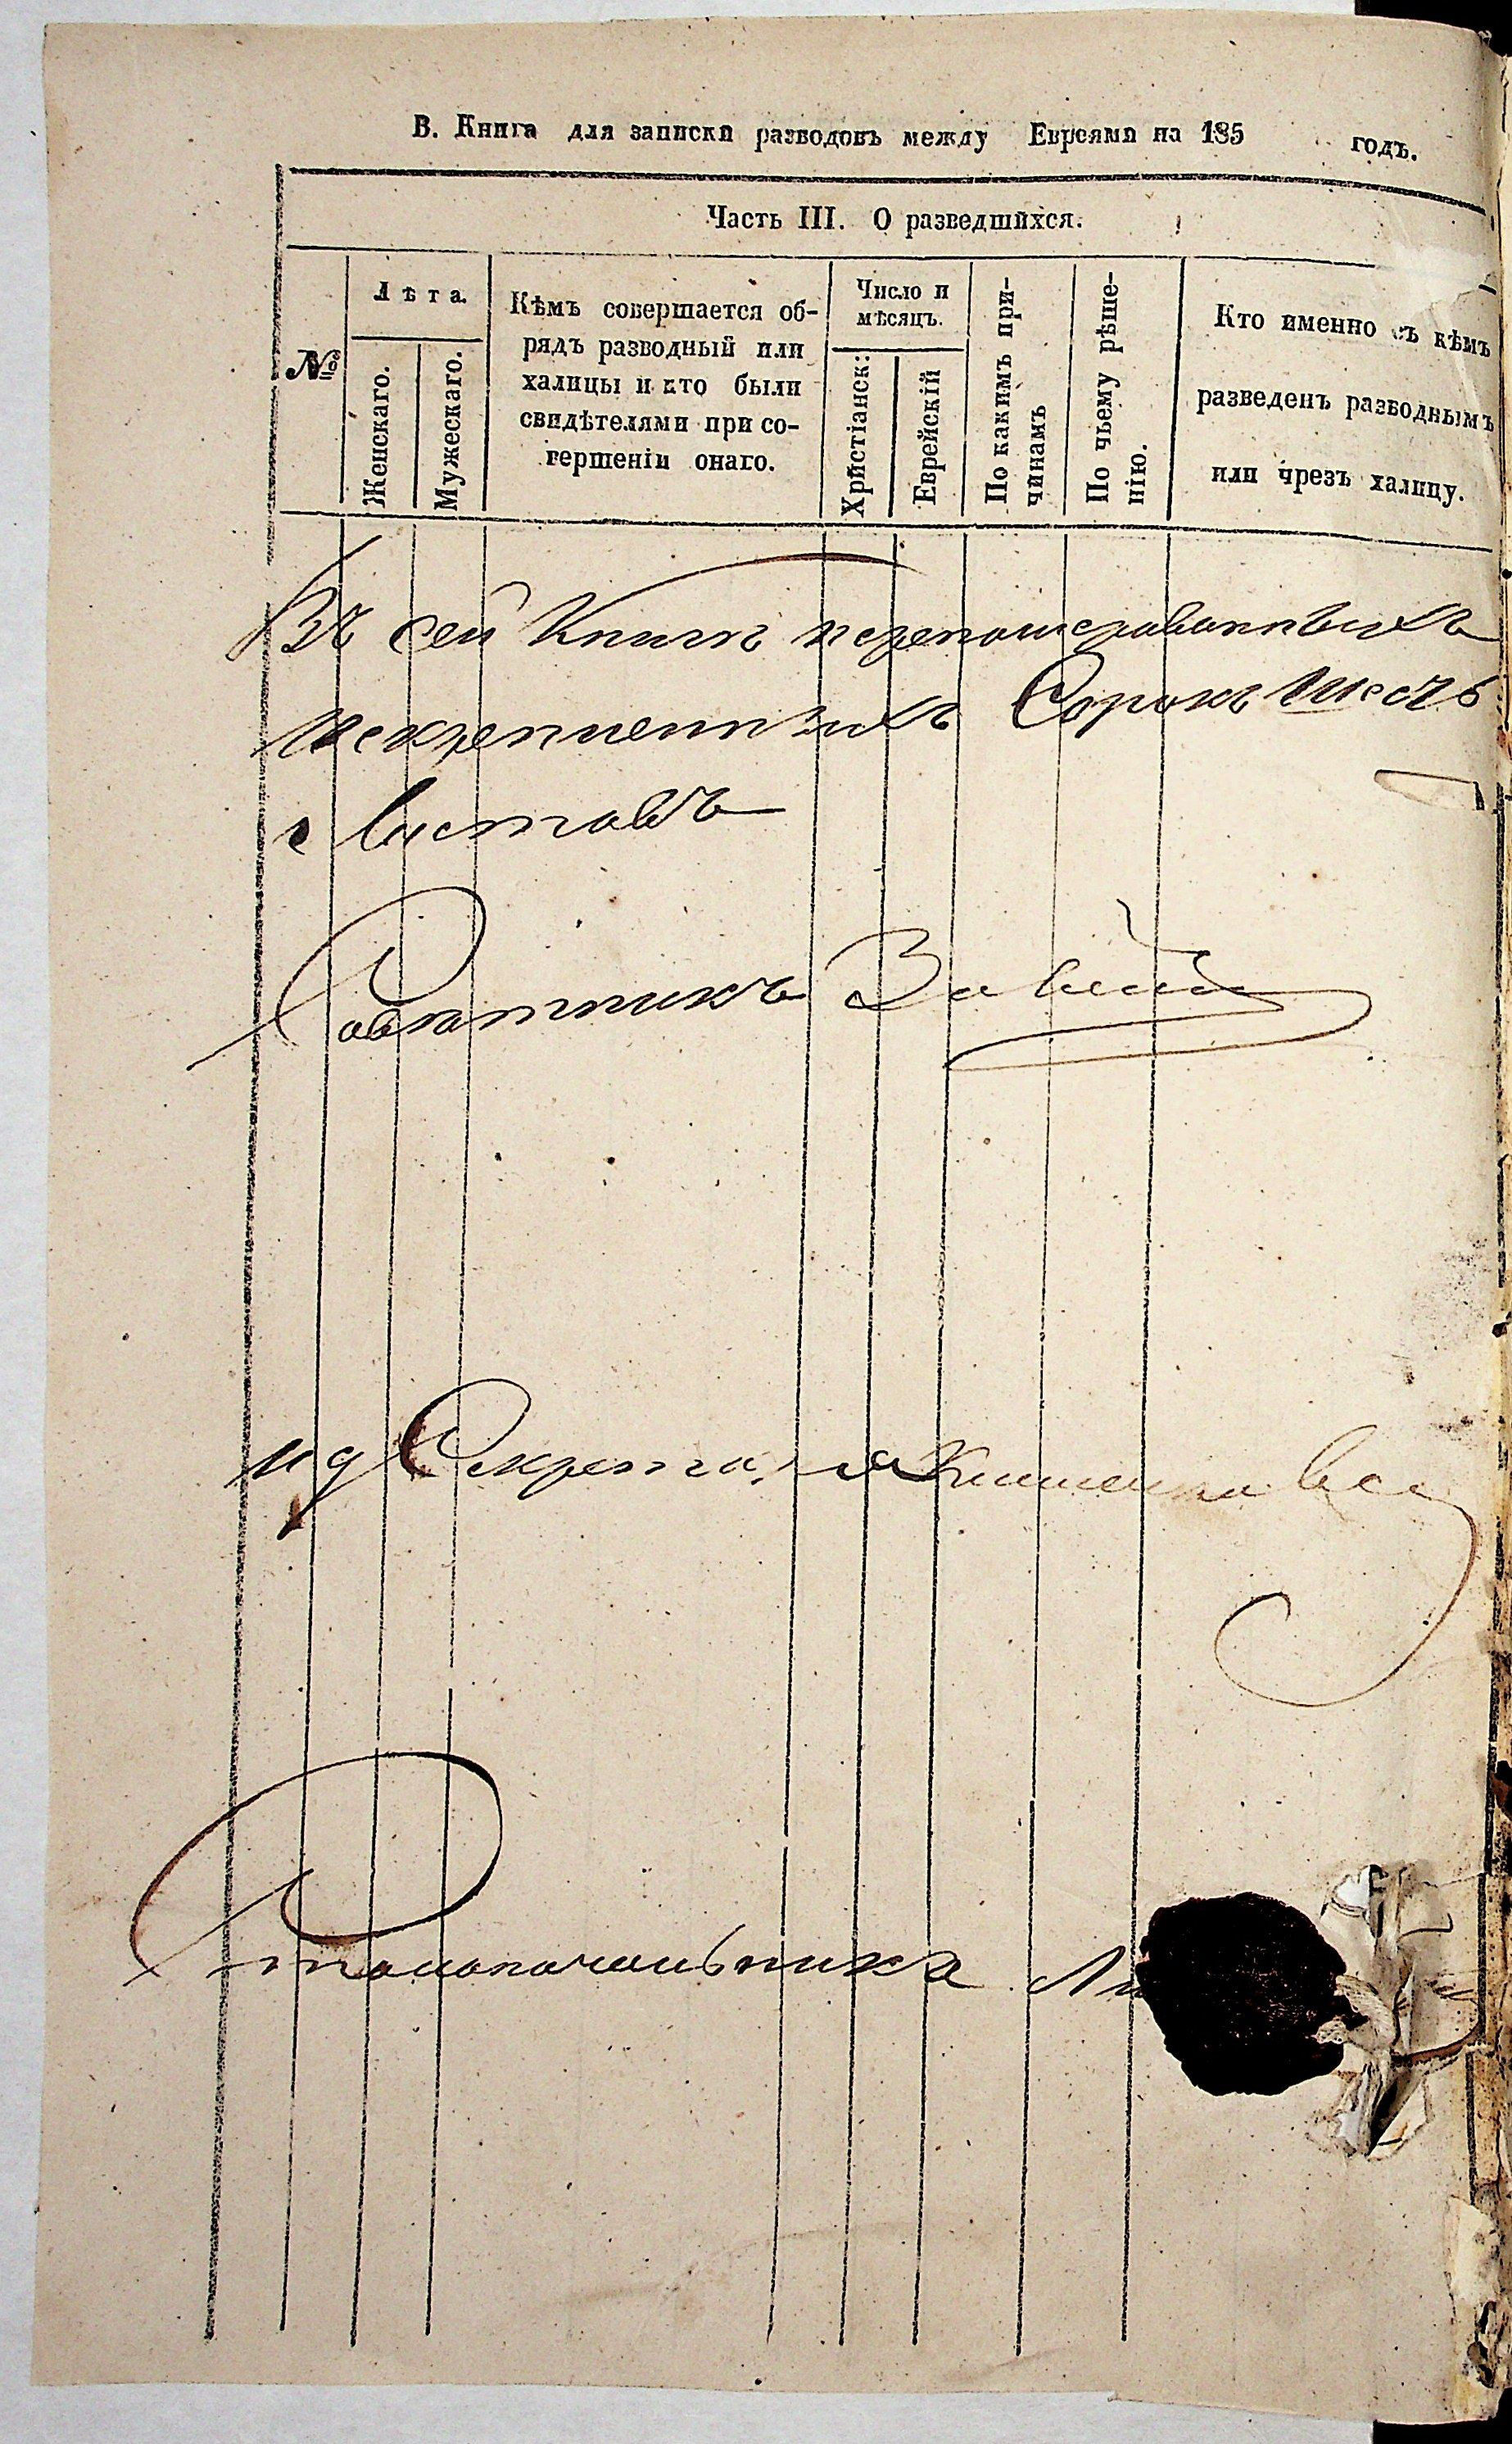 В. Книга для записки разводовъ между Евреями на 185 годъ.
Часть III. О разведшихся.
№
Лѣта.
Женскаго.
Мужескаго.
Кѣмъ совершается об-
рядъ разводный или
халицы и кто были
свидѣтелями при со-
вершеніи онаго.
Число и
мѣсяцъ.
Христіанск:
Еврейскій
По какимъ при-
чинамъ
По чьему рѣше-
нію.
Кто именно съ кѣмъ
разведенъ разводнымъ
или чрезъ халицу.
Въ сей Книгѣ перенумерованныхъ
искрепленныхъ Сорокъ шесть
листовъ
Совѣтникъ
И д Секретаря
Столоначальника